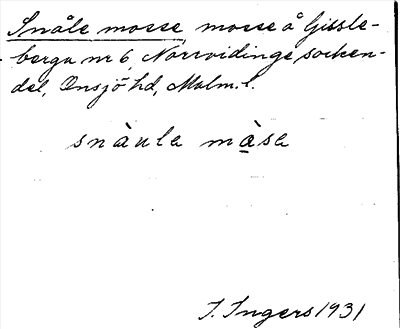 Snåle mosse, mosse å Gissle-
berga nr 6, Norrvidinge socken-
del, Onsjö hd, Malm. l.
snàula màsa
I. Ingers 1931